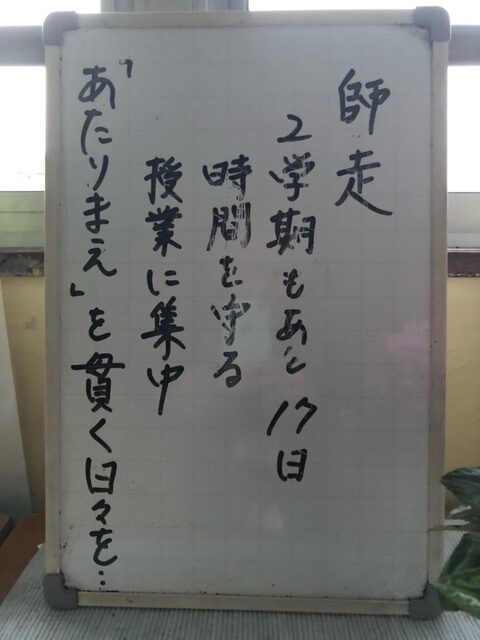 師走
2学期もあと17日
時間を守る
授業に集中
「あたりまえ」を貫く日々を…